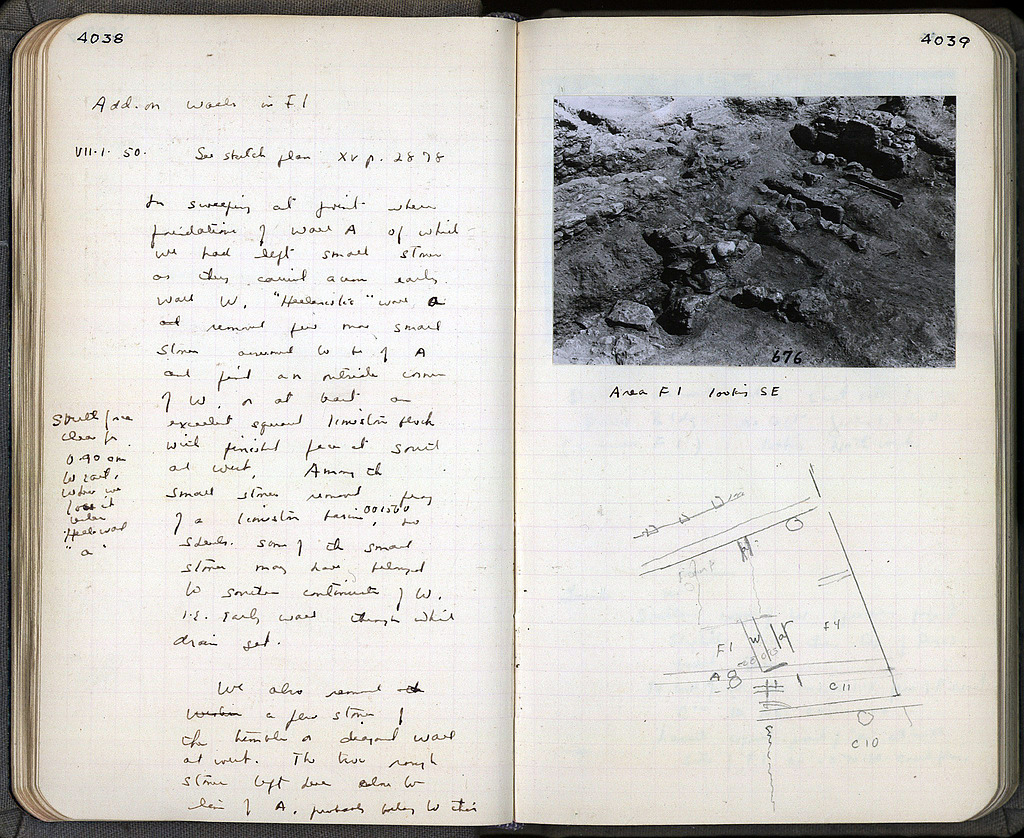 4038
Add. on walls in F1
VII.1.50. See sketch plan XV p. 2878
In sweeping at point where
foundations of wall A of which
we had left small stones
as they carried across early
wall W, "Hellenistic" wall a
remove few more small
stones assumed to be of A
and find an outside corner
of W, or at least an
excellent squared limestone block
with finished face at south
and west. Among the
small stones removed frag
of a limestone basin, no
sherds. Some of the small
stones may have belonged
to southern continuation of W.
i.e. Early wall through which
drain set.
South face
clear for
0.90 on
W east,
where we
lose it
under
Hell. wall
"a"
We also removed
a few stones of
the terrible diagonal wall
at west. The two rough
stones left here close to
line of A, probably belong to this
4039
676
Area F1 looking SE
F1
W
a
F4
A
C11
C10